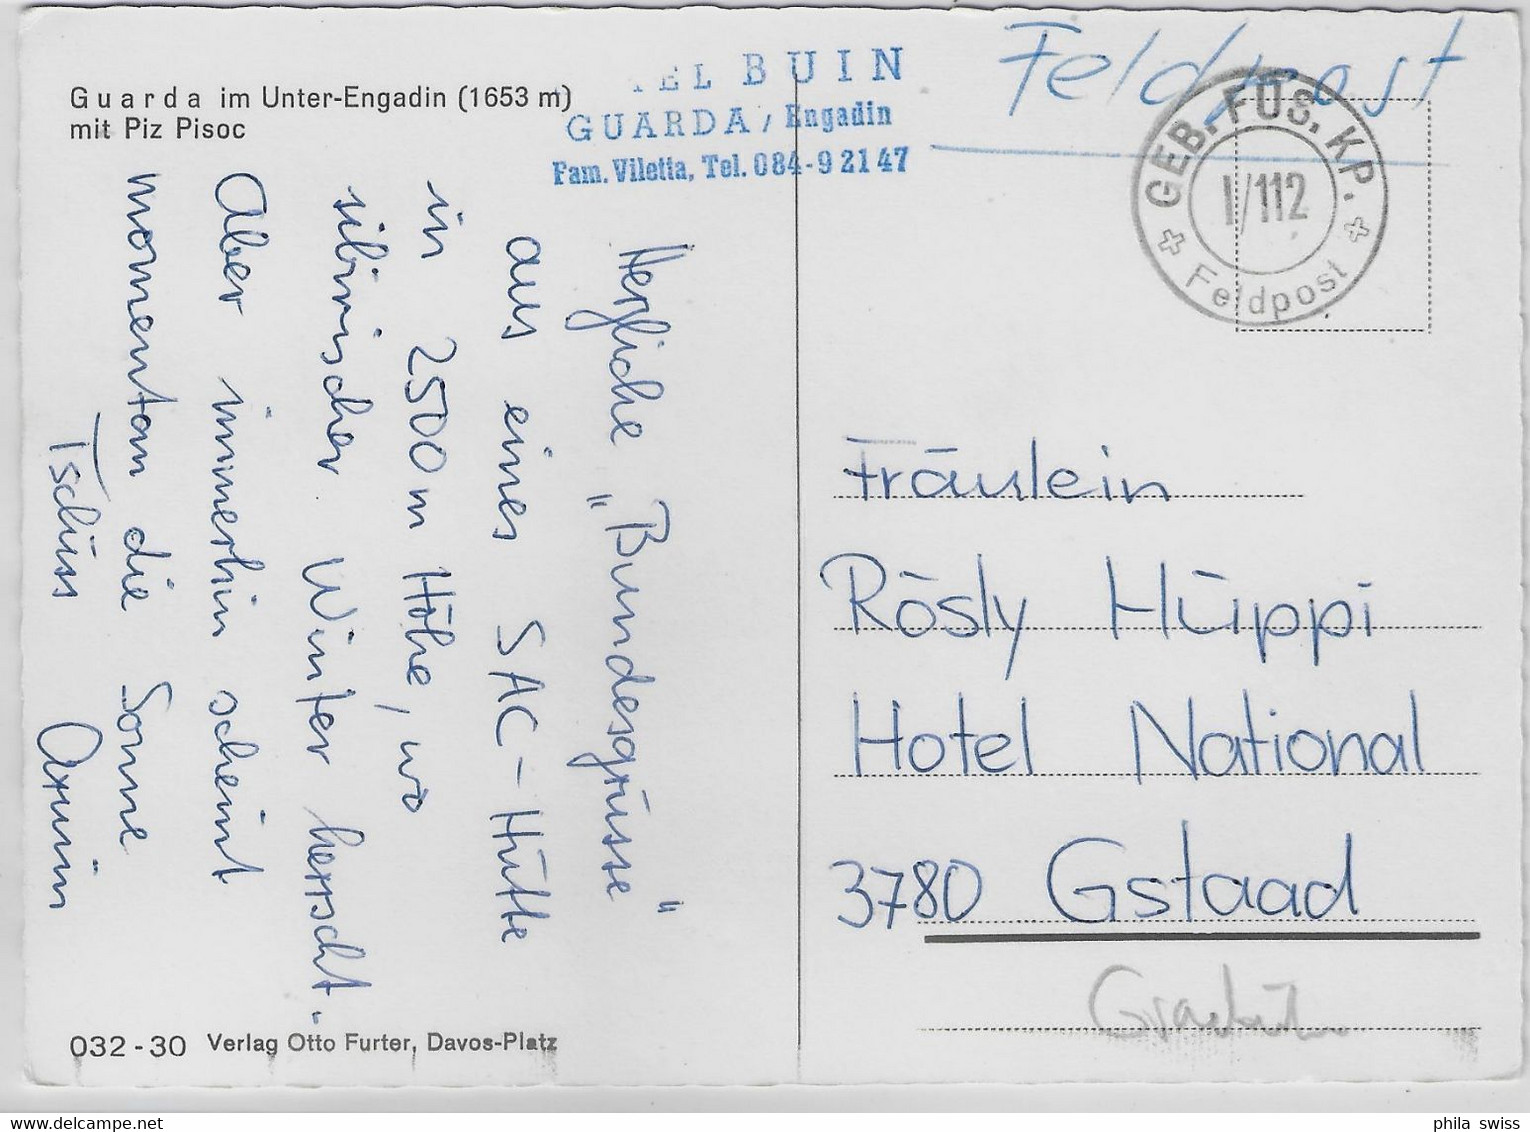 Guarda im Unter-Engadin (1653 m)
mit Piz Pisoc
TEL BUIN
GUARDA / Engadin
Fam. Viletta, Tel. 084-9 21 47
Feldpost
GEB. FÜS. KP.
I/112
Feldpost
Herzliche „Bundesgrüsse"
aus einer SAC-Hütte
in 2500 m Höhe, wo
sibirischer Winter herrscht.
Aber immerhin scheint
momentan die Sonne
Tschüss Armin
Fräulein
Rösly Hüppi
Hotel National
3780 Gstaad
032-30 Verlag Otto Furter, Davos-Platz
phila swiss